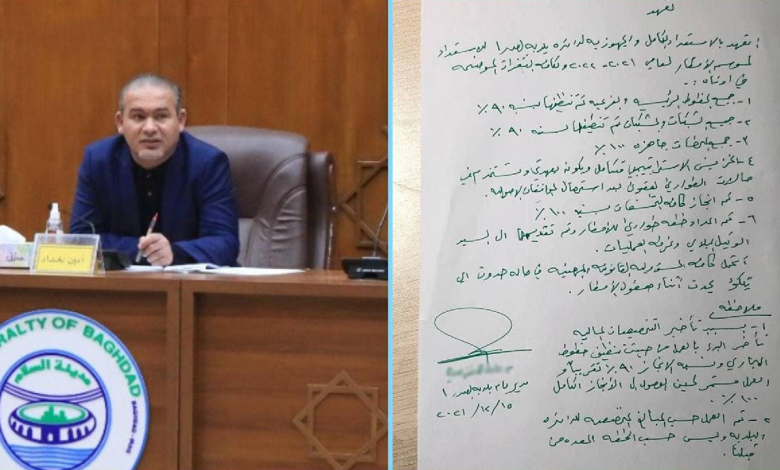 امين بغداد
RALTY OF BAGHDAD
مدينة السلام
تعهد
اتعهد بالاستعداد الكامل والجهوزية لدائرة بلدية الصدر ١ للاستعداد
لموسم الامطار لعامي ٢٠٢١-٢٠٢٢ وكافة الفقرات الموضحة
في ادناه :-
١- جميع الخطوط الرئيسية والفرعية تم تنظيفها بنسبة ٩٠٪
٢- جميع الشبكات والمشبكات تم تنظيفها بنسبة ٩٠٪
٣- جميع المضخات جاهزة ١٠٠٪
٤- الخزين الاستراتيجي متكامل ويكون بعهدتي ويستخدم في
حالات الطوارئ القصوى بعد استحصال الموافقات الاصولية.
٥- تم انجاز كافة بنسبة ١٠٠٪
٦- تم اعداد خطة طوارئ للامطار وتم تقديمها الى السيد
الوكيل البلدي وغرفة العمليات.
اتحمل كافة المسؤولية القانونية والمهنية في حالة حدوث اي
تلكؤ يحدث أثناء هطول الامطار.
ملاحظة
١- بسبب تأخير التخصيصات المالية
تأخر البدء بالعمل من حيث تنظيف خطوط
المجاري ونسبة الانجاز ٩٠٪ تقريبا و
العمل مستمر لحين الوصول الى الانجاز الكامل
١٠٠٪.
٢- تم العمل حسب المبالغ المخصصة للدائرة
البلدية وليس حسب الخطة المعدة من
قبلنا.
مدير عام بلدية الصدر ١
٢٠٢١/١٢/١٥